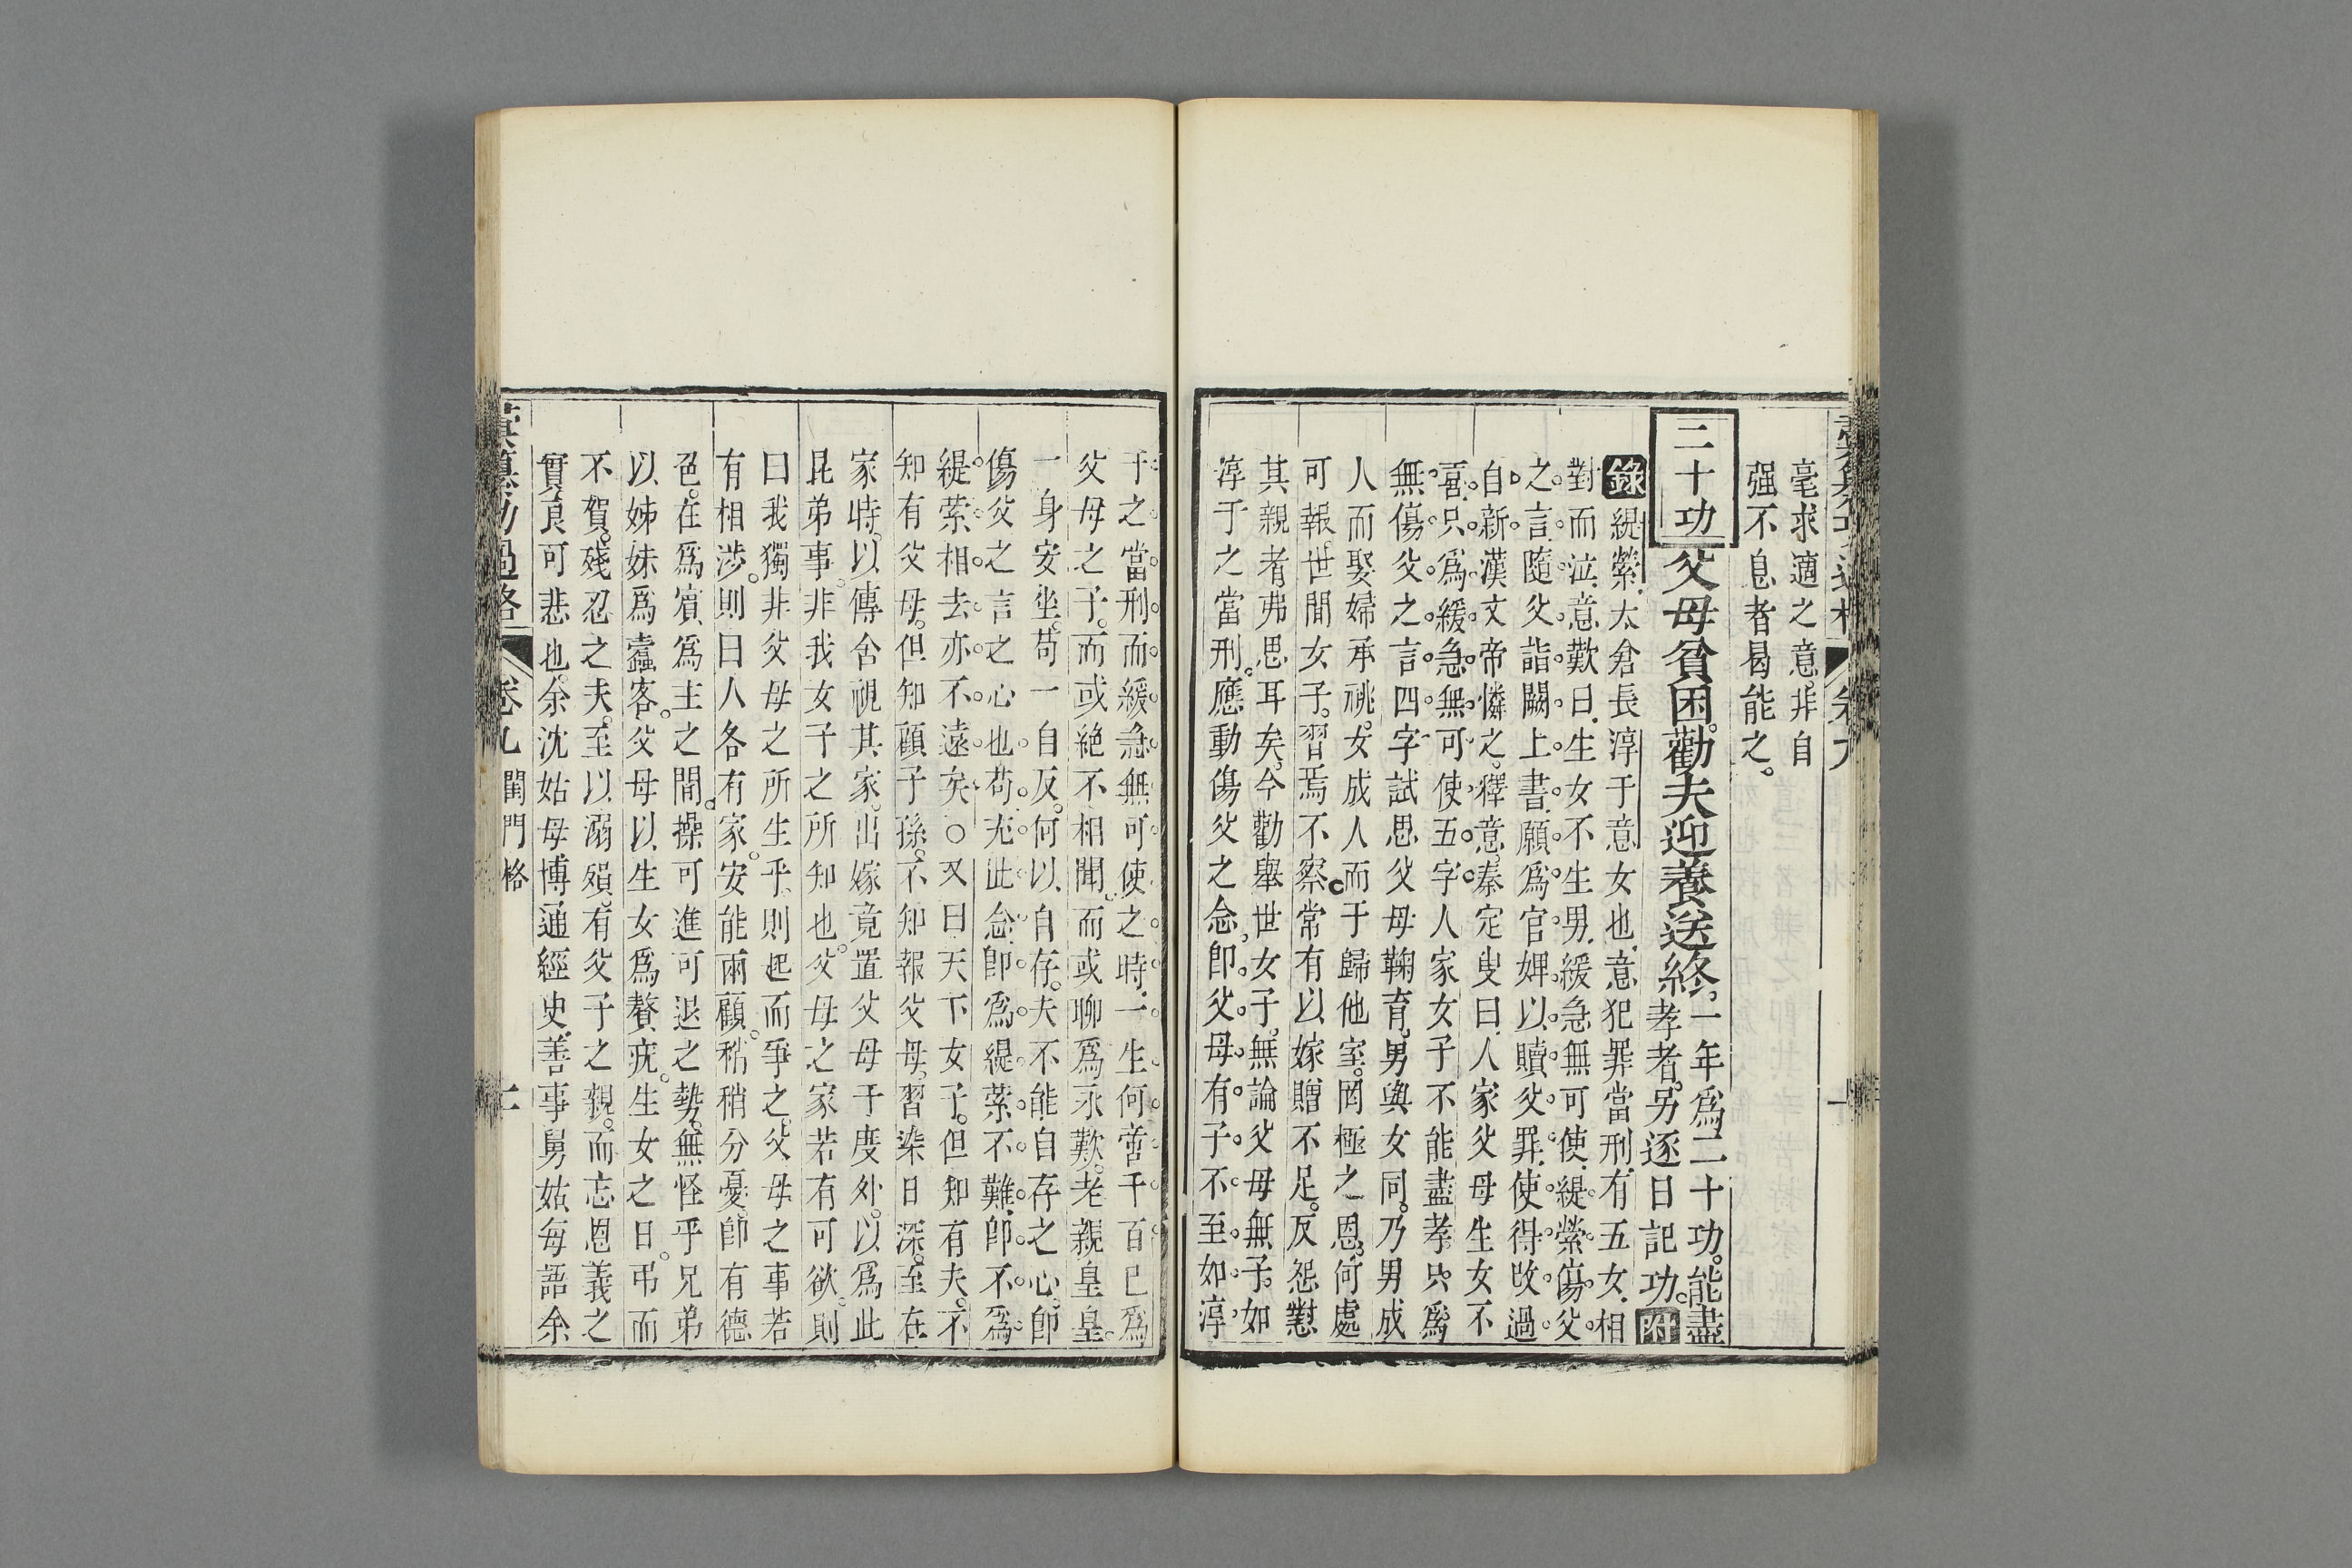 毫求適之意非自
强不息者曷能之。
二十功
父母貧困。勸夫迎養送終。一年爲二十功。能盡
孝者。另逐日記功。附
錄緹縈。太倉長淳于意女也。意犯罪當刑。有五女。相
對而泣。意歎曰。生女不生男。緩急無可使。緹縈傷父
之言。隨父詣闕上書。願爲官婢以贖父罪。使得改過
自新。漢文帝憐之。釋意。秦定叟曰。人家父母生女不
喜。只爲緩急無可使五字。人家女子不能盡孝。只爲
無傷父之言四字。試思父母鞠育。男與女同。乃男成
人而娶婦承祧。女成人而于歸他室。罔極之恩。何處
可報。世間女子。習焉不察。常有以嫁贈不足。反怨懟
其親者。弗思耳矣。今勸舉世女子。無論父母無子。如
淳于之當刑。應動傷父之念。卽父母有子不至如淳
于之當刑。而緩急無可使之時。一生何啻千百。已爲
父母之子。而或絶不相聞。而或聊爲永歎。老親皇皇。
一身安坐。苟一自反。何以自存。夫不能自存之心。卽
傷父之言之心也。苟充此念。卽爲緹縈不難。卽不爲
緹縈。相去亦不遠矣。○又曰。天下女子。但知有夫。不
知有父母。但知顧子孫。不知報父母。習染日深。至在
家時。以傳舍視其家。出嫁竟置父母于度外。以爲此
昆弟事。非我女子之所知也。父母之家若有可欲。則
曰我獨非父母之所生乎。則起而爭之。父母之事若
有相涉。則曰人各有家。安能兩顧。稍稍分憂。卽有德
色。在爲賓爲主之間。操可進可退之勢。無怪乎兄弟
以姊妹爲蠹客。父母以生女爲贅疣。生女之日。弔而
不賀。殘忍之夫。至以溺殞。有父子之親。而忘恩義之
實。良可悲也。余沈姑母博通經史。善事舅姑。每語余
彙纂功過格 卷九 閨門格